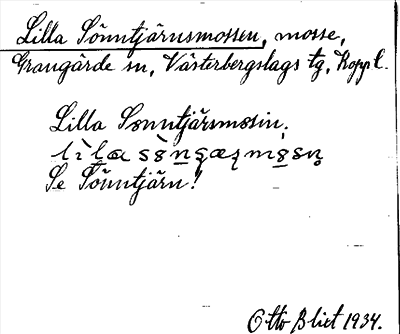 Lilla Sönntjärnsmossen, mosse,
Grangärde sn, Västerbergslags tg, Kopp l.
Lilla Sönntjärsmosin.
Se Sönntjärn!
Otto Blixt 1934.